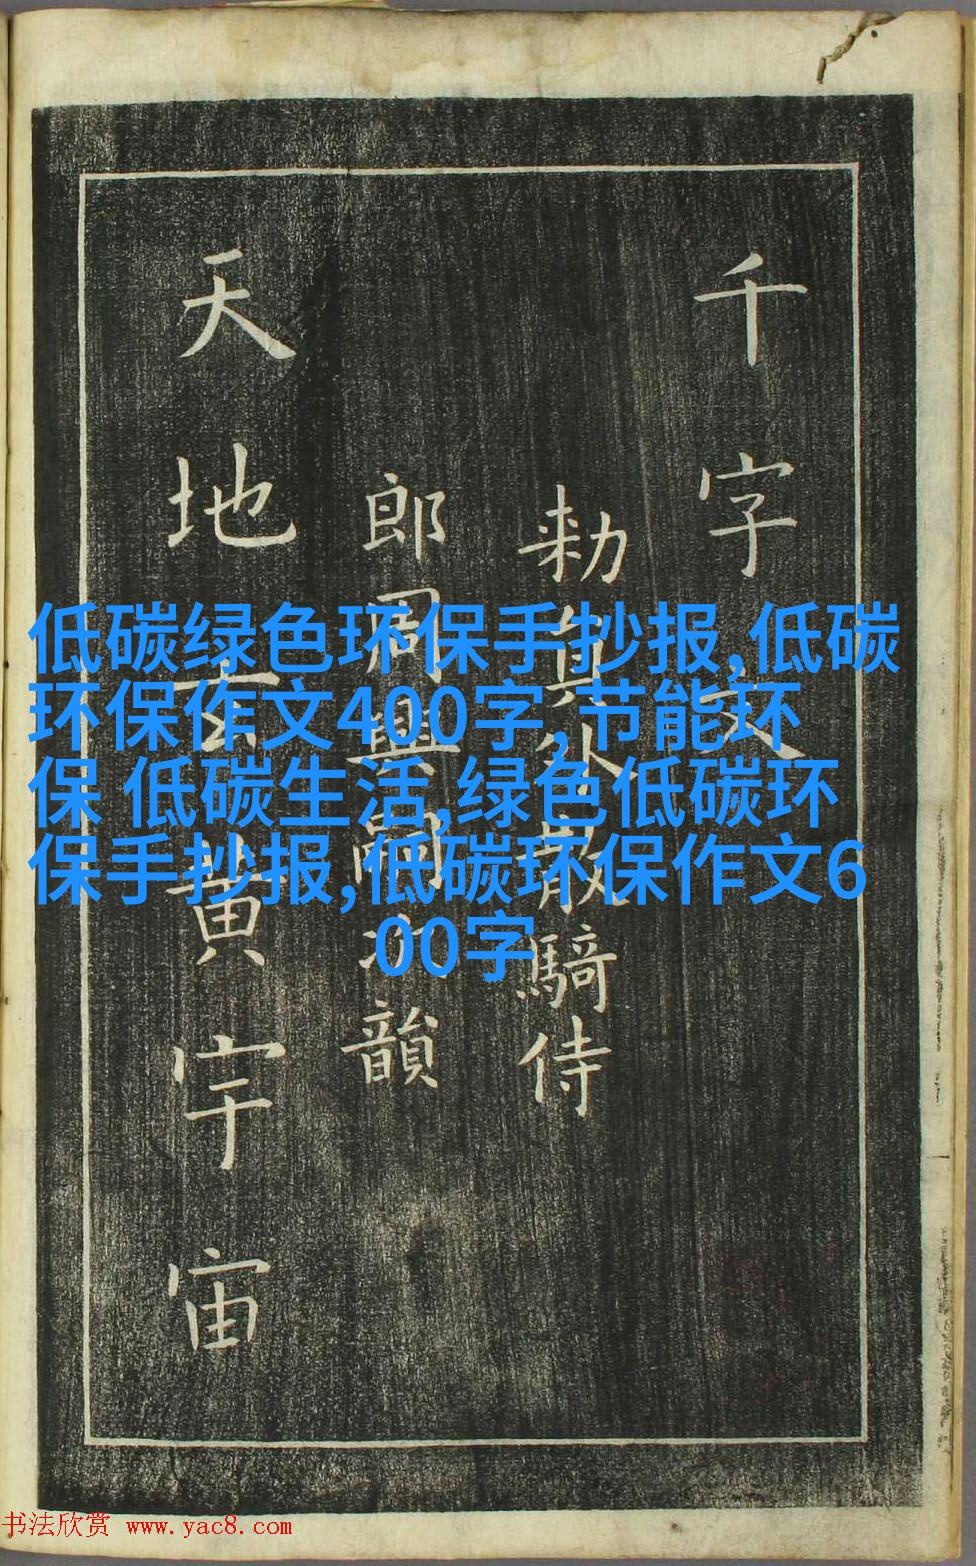 千字文
勑員外散騎侍
郎周興嗣次韻
天地玄黄宇宙
低碳绿色环保手抄报,低碳
环保作文400字,节能环
保 低碳生活,绿色低碳环
保手抄报,低碳环保作文6
00字
书法欣赏 www.yac8.com